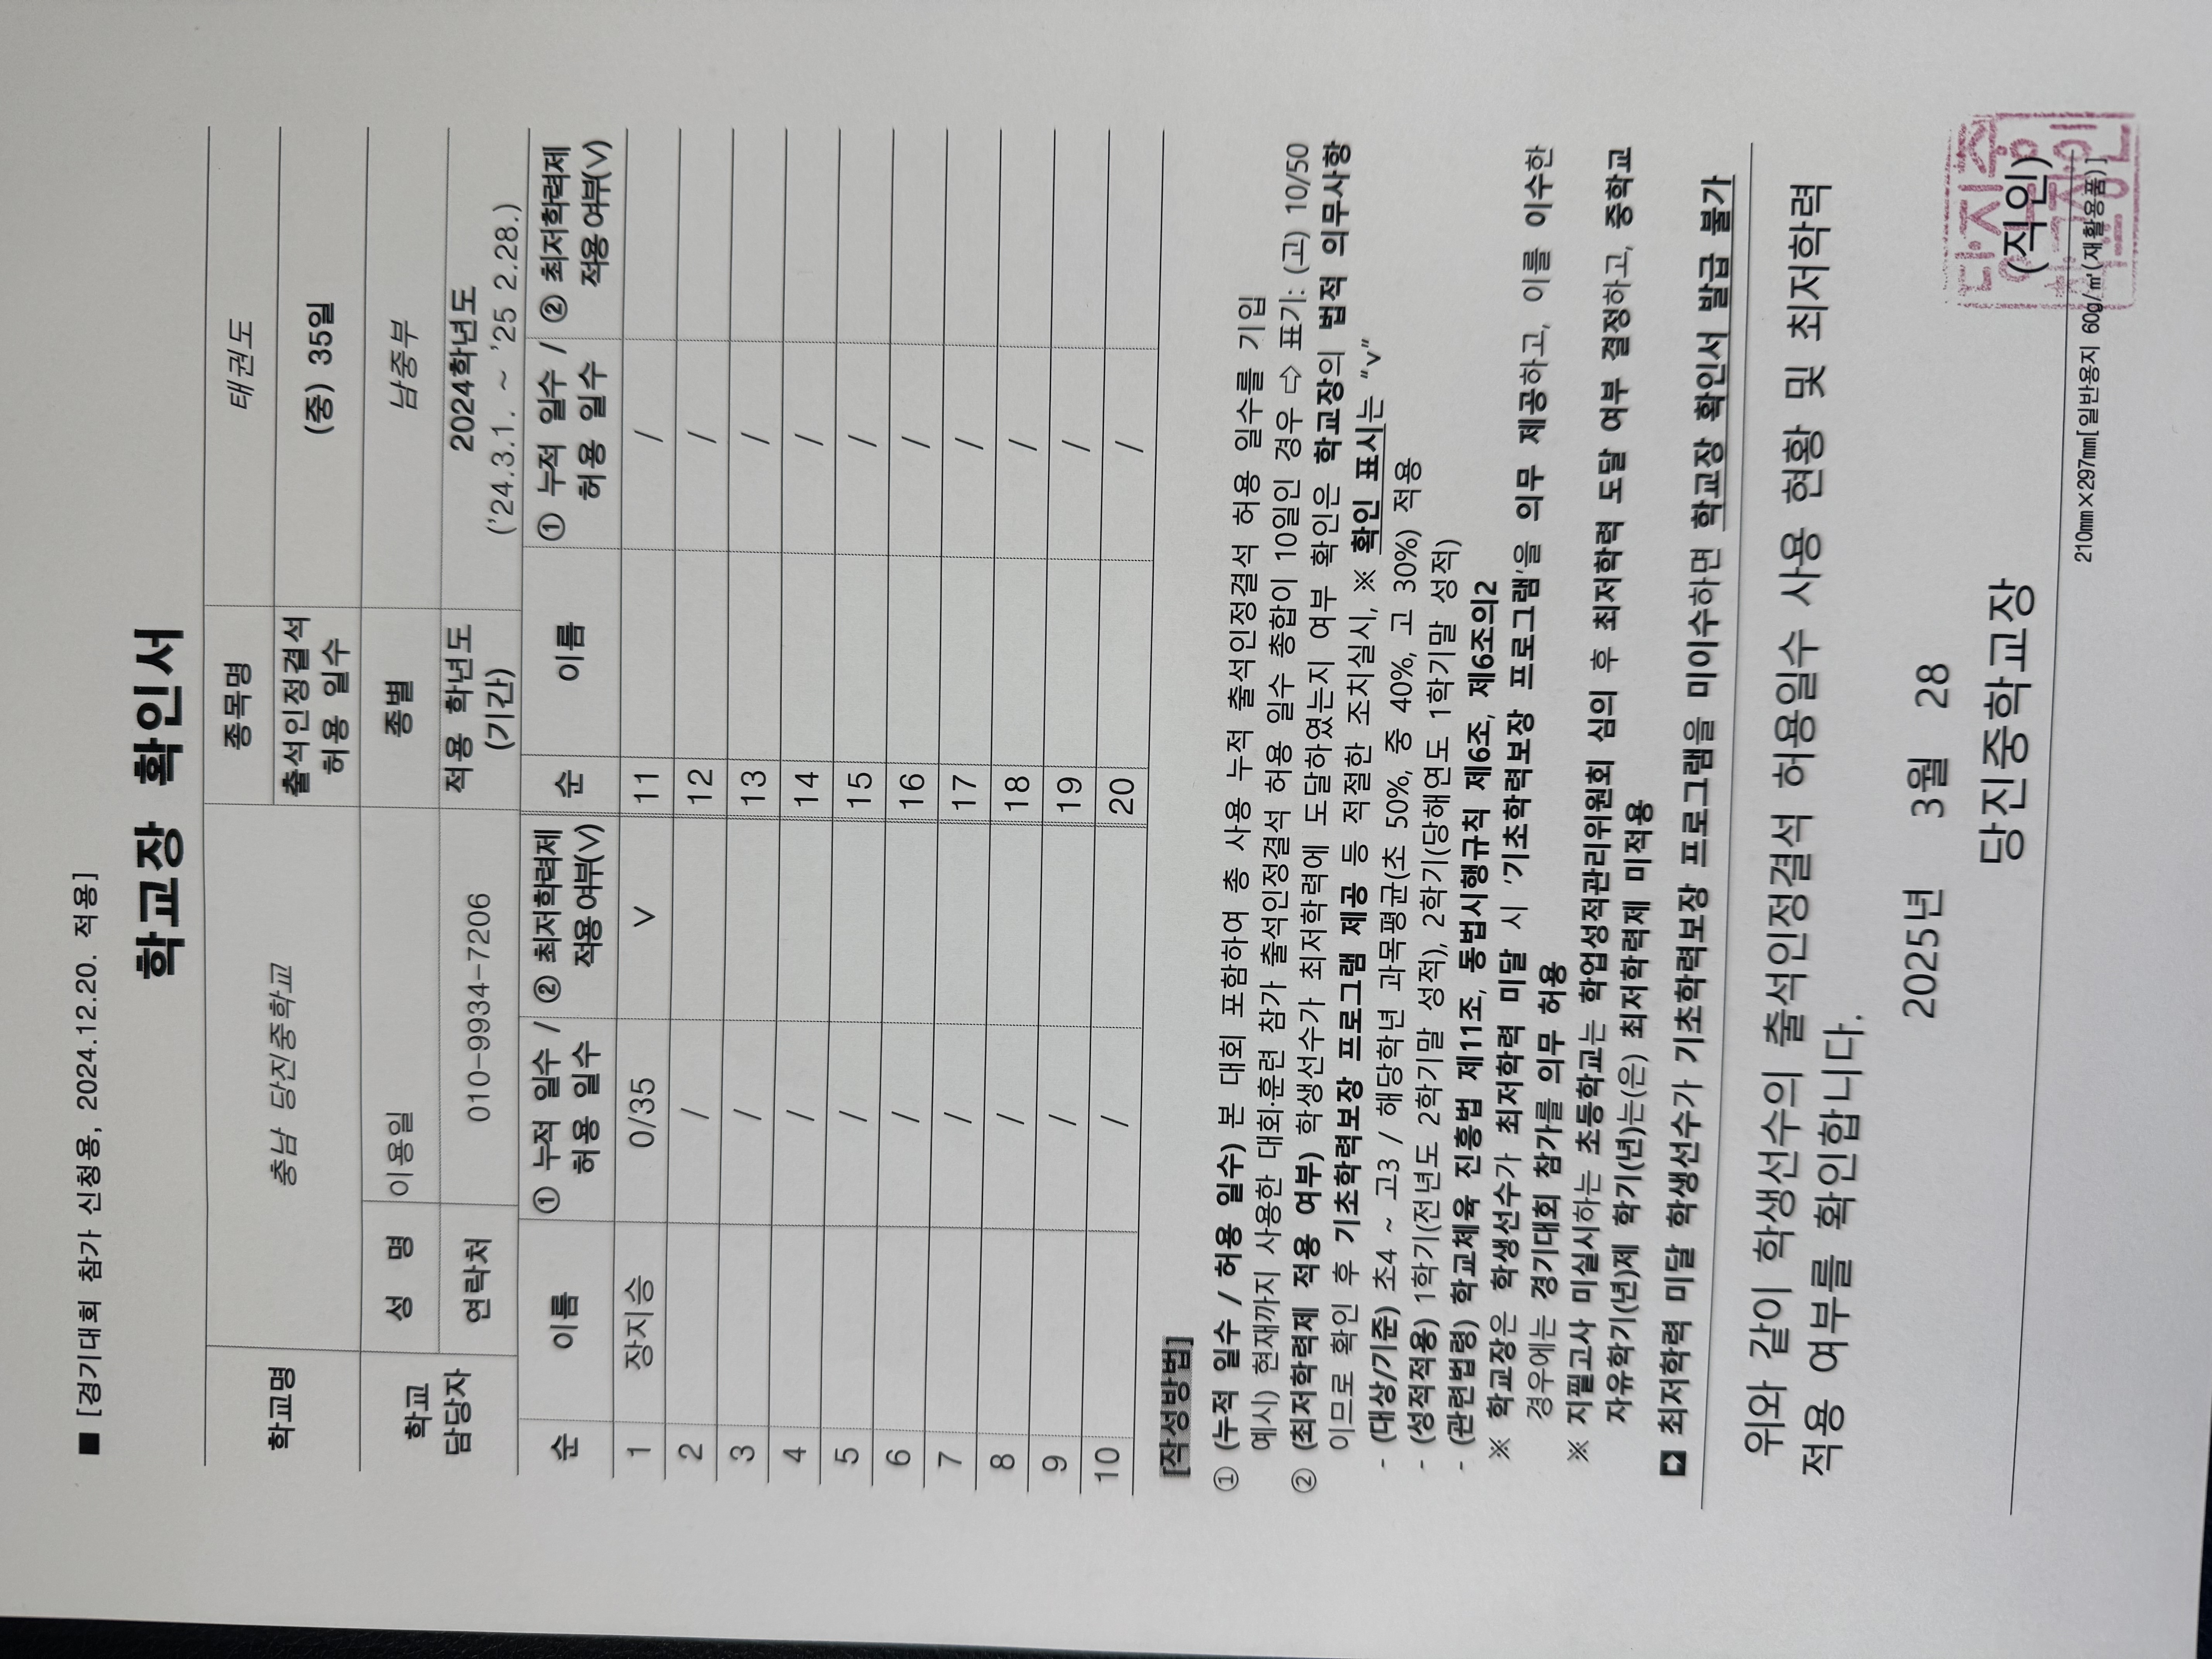 ■ [경기대회 참가 신청용, 2024.12.20. 적용]
학교장 확인서
학교명 충남 당진중학교 종목명 태권도
출석인정결석 허용 일수 (중) 35일
학교 담당자 성 명 이용일 종별 남중부
연락처 010-9934-7206 적용 학년도 (기간) 2024학년도 ('24.3.1. ~ '25 2.28.)
순 이름 ① 누적 일수 / 허용 일수 ② 최저학력제 적용여부(V) 순 이름 ① 누적 일수 / 허용 일수 ② 최저학력제 적용여부(V)
1 장지승 0/35 V 11 /
2 / 12 /
3 / 13 /
4 / 14 /
5 / 15 /
6 / 16 /
7 / 17 /
8 / 18 /
9 / 19 /
10 / 20 /
[작성방법]
① (누적 일수 / 허용 일수) 본 대회 포함하여 총 사용 누적 출석인정결석 허용 일수를 기입
예시) 현재까지 사용한 대회·훈련 참가 출석인정결석 허용 일수 총합이 10일인 경우 ⇨ 표기: (고) 10/50
② (최저학력제 적용 여부) 학생선수가 최저학력에 도달하였는지 여부 확인은 학교장의 법적 의무사항
이므로 확인 후 기초학력보장 프로그램 제공 등 적절한 조치실시, ※ 확인 표시는 "v"
- (대상/기준) 초4 ~ 고3 / 해당학년 과목평균(초 50%, 중 40%, 고 30%) 적용
- (성적적용) 1학기(전년도 2학기말 성적), 2학기(당해연도 1학기말 성적)
- (관련법령) 학교체육 진흥법 제11조, 동법시행규칙 제6조, 제6조의2
※ 학교장은 학생선수가 최저학력 미달 시 '기초학력보장 프로그램'을 의무 제공하고, 이를 이수한
경우에는 경기대회 참가를 의무 허용
※ 지필고사 미실시하는 초등학교는 학업성적관리위원회 심의 후 최저학력 도달 여부 결정하고, 중학교
자유학기(년)제 학기(년)는(은) 최저학력제 미적용
최저학력 미달 학생선수가 기초학력보장 프로그램을 미이수하면 학교장 확인서 발급 불가
위와 같이 학생선수의 출석인정결석 허용일수 사용 현황 및 최저학력
적용 여부를 확인합니다.
2025년 3월 28
당진중학교장 (직인)
210㎜×297㎜[일반용지 60g/㎡(재활용품)]